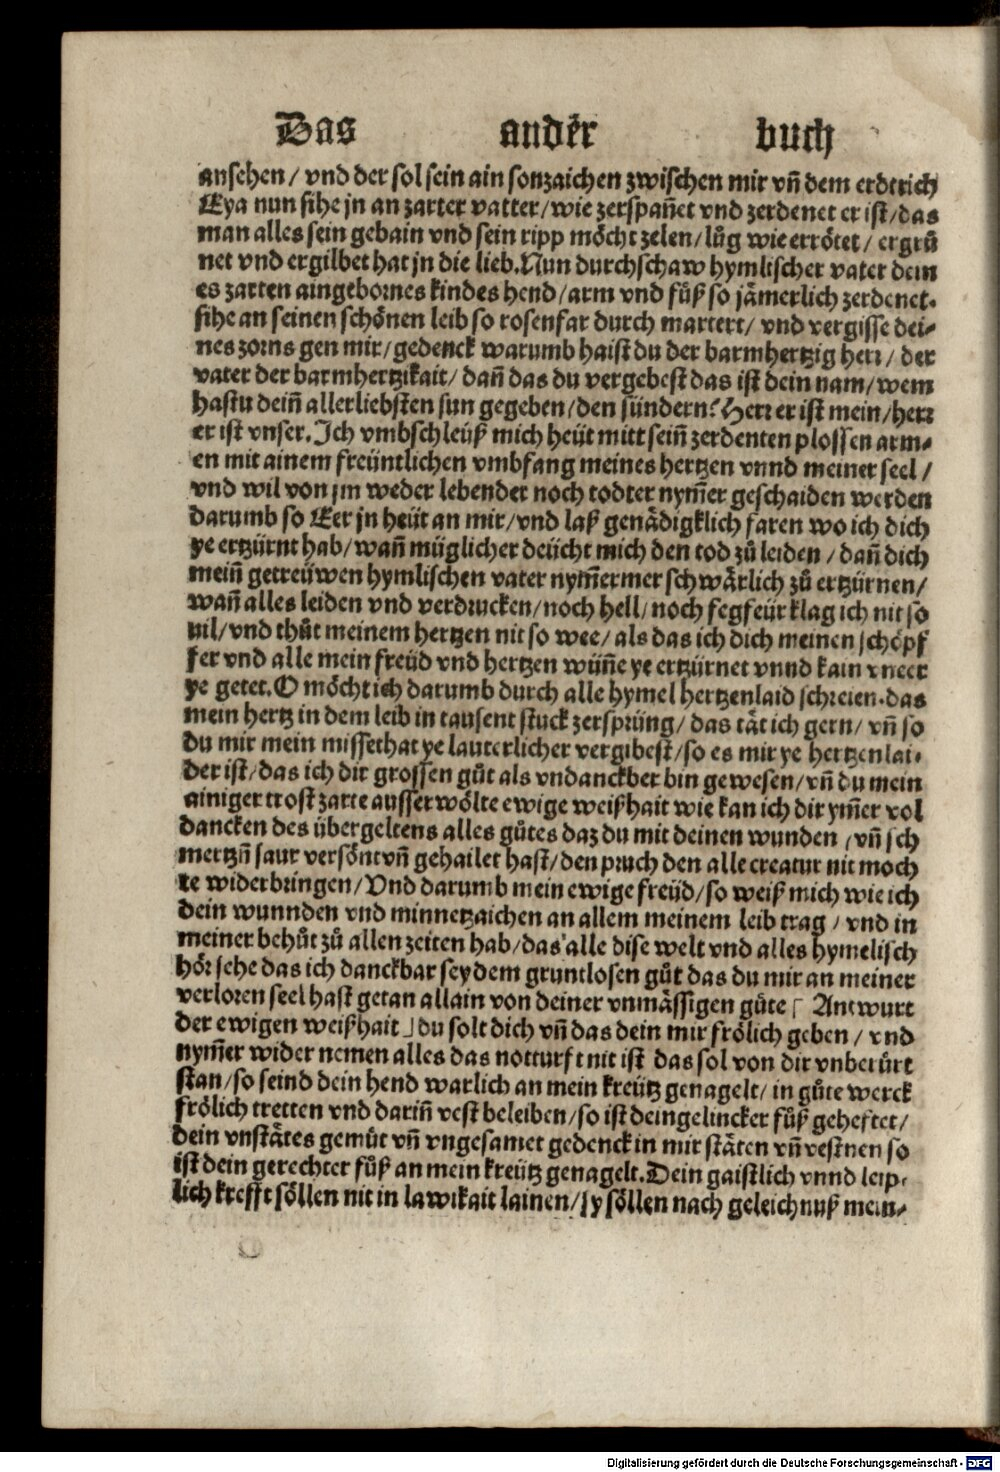 Das ander buch
ansehen / vnd der sol sein ain sonzaichen zwischen mir vñ dem erdtrich
Eya nun sihe jn an zarter vatter / wie zerspañet vnd zerdenet er ist / das
man alles sein gebain vnd sein ripp möcht zelen / lůg wie errötet / ergrů
net vnd ergilbet hat jn die lieb. Nun durchschaw hymlischer vater dein
es zarten aingebornes kindes hend / arm vnd fůß so jämerlich zerdenet.
sihe an seinen schönen leib so rosenfar durch martert / vnd vergisse dei-
nes zorns gen mir / gedenck warumb haist du der barmhertzig herr / der
vater der barmhertzikait / dañ das du vergebest das ist dein nam / wem
hastu deiñ allerliebsten sun gegeben / den sündern? Herr er ist mein / herr
er ist vnser. Ich vmbschleüß mich heüt mitt seiñ zerdenten plossen arm-
en mit ainem freüntlichen vmbfang meines hertzen vnnd meiner seel /
vnd wil von jm weder lebender noch todter nym̃er geschaiden werden
darumb so Eer jn heüt an mir / vnd laß genädigklich faren wo ich dich
ye ertzürnt hab / wañ müglicher deücht mich den tod zů leiden / dañ dich
meiñ getreüwen hymlischen vater nym̃ermer schwärlich zů ertzürnen /
wañ alles leiden vnd verdrucken / noch hell / noch fegfeür klag ich nit so
uil / vnd thůt meinem hertzen nit so wee / als das ich dich meinen schöpf
fer vnd alle mein freüd vnd hertzen wüñe ye ertzürnet vnnd kain vneer
ye getet. O möcht ich darumb durch alle hymel hertzenlaid schreien. das
mein hertz in dem leib in tausent stuck zersprüng / das tät ich gern / vñ so
du mir mein missethat ye lauterlicher vergibest / so es mir ye hertzenlai-
der ist / das ich dir grossen gůt als vndanckber bin gewesen / vñ du mein
ainiger trost zarte ausserwölte ewige weißhait wie kan ich dir ym̃er vol
dancken des übergeltens alles gůtes daz du mit deinen wunden / vñ sch
mertzñ saur versönt vñ gehailet hast / den pruch den alle creatur nit moch
te widerbringen / Vnd darumb mein ewige freüd / so weiß mich wie ich
dein wunnden vnd minnetzaichen an allem meinem leib trag / vnd in
meiner behůt zů allen zeiten hab / das alle dise welt vnd alles hymelisch
hör sehe das ich danckbar sey dem gruntlosen gůt das du mir an meiner
verloren seel hast getan allain von deiner vnmässigen gůte ⌈ Antwurt
der ewigen weißhait ⌋ du solt dich vñ das dein mir frölich geben / vnd
nym̃er wider nemen alles das notturft nit ist das sol von dir vnberürt
stan / so seind dein hend warlich an mein kreütz genagelt / in gůte werck
frölich tretten vnd dariñ vest beleiben / so ist dein gelincker fůß geheftet /
dein vnstätes gemůt vñ vngesamet gedenck in mir stäten vñ vestnen so
ist dein gerechter fůß an mein kreütz genagelt. Dein gaistlich vnnd leip-
lich krefft söllen nit in lawikait lainen / sy söllen nach geleichnuß mein-
Digitalisierung gefördert durch die Deutsche Forschungsgemeinschaft - DFG